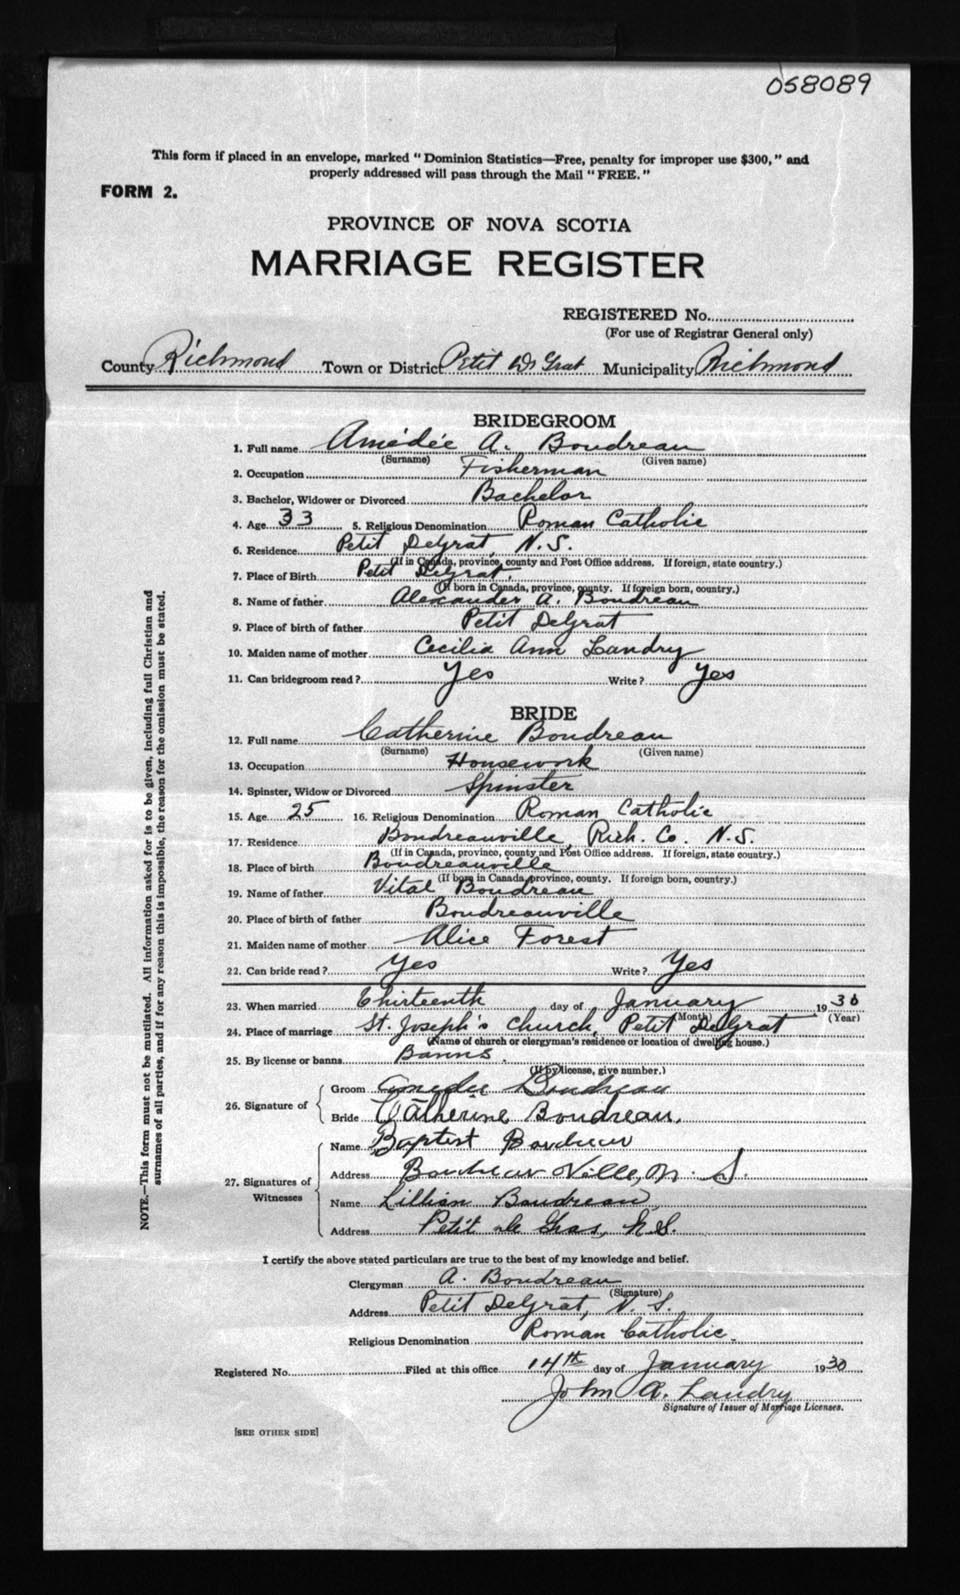 058089
This form if placed in an envelope, marked "Dominion Statistics—Free, penalty for improper use $300," and
properly addressed will pass through the Mail "FREE."
FORM 2.
PROVINCE OF NOVA SCOTIA
MARRIAGE REGISTER
REGISTERED No.
(For use of Registrar General only)
County Richmond Town or District Petit De Grat Municipality Richmond
BRIDEGROOM
1. Full name Amédée A. Boudreau
(Surname) (Given name)
2. Occupation Fisherman
3. Bachelor, Widower or Divorced Bachelor
4. Age 33 5. Religious Denomination Roman Catholic
6. Residence Petit DeGrat, N.S.
(If in Canada, province, county and Post Office address. If foreign, state country.)
7. Place of Birth Petit DeGrat.
(If born in Canada, province, county. If foreign born, country.)
8. Name of father Alexander A. Boudreau
9. Place of birth of father Petit DeGrat
10. Maiden name of mother Cecilia Ann Landry
11. Can bridegroom read? Yes Write? Yes
BRIDE
12. Full name Catherine Boudreau
(Surname) (Given name)
13. Occupation Housework
14. Spinster, Widow or Divorced Spinster
15. Age 25 16. Religious Denomination Roman Catholic
17. Residence Boudreauville, Rich. Co. N.S.
(If in Canada, province, county and Post Office address. If foreign, state country.)
18. Place of birth Boudreauville
(If born in Canada, province, county. If foreign born, country.)
19. Name of father Vital Boudreau
20. Place of birth of father Boudreauville
21. Maiden name of mother Alice Forest
22. Can bride read? Yes Write? Yes
23. When married Thirteenth day of January 1930
(Month) (Year)
24. Place of marriage St. Joseph's Church, Petit DeGrat
(Name of church or clergyman's residence or location of dwelling house.)
25. By license or banns Banns.
(If by license, give number.)
26. Signature of
Groom Amedée Boudreau
Bride Catherine Boudreau.
27. Signatures of Witnesses
Name Baptist Boudreau
Address Boudreau Ville, N. S.
Name Lillian Boudreau
Address Petit de Gras, N.S.
I certify the above stated particulars are true to the best of my knowledge and belief.
Clergyman A. Boudreau
(Signature)
Address Petit DeGrat, N. S.
Religious Denomination Roman Catholic.
Registered No. Filed at this office 14th day of January 1930
John A. Landry
Signature of Issuer of Marriage Licenses.
[SEE OTHER SIDE]
NOTE.—This form must not be mutilated. All information asked for is to be given, including full Christian and
surnames of all parties, and if for any reason this is impossible, the reason for the omission must be stated.